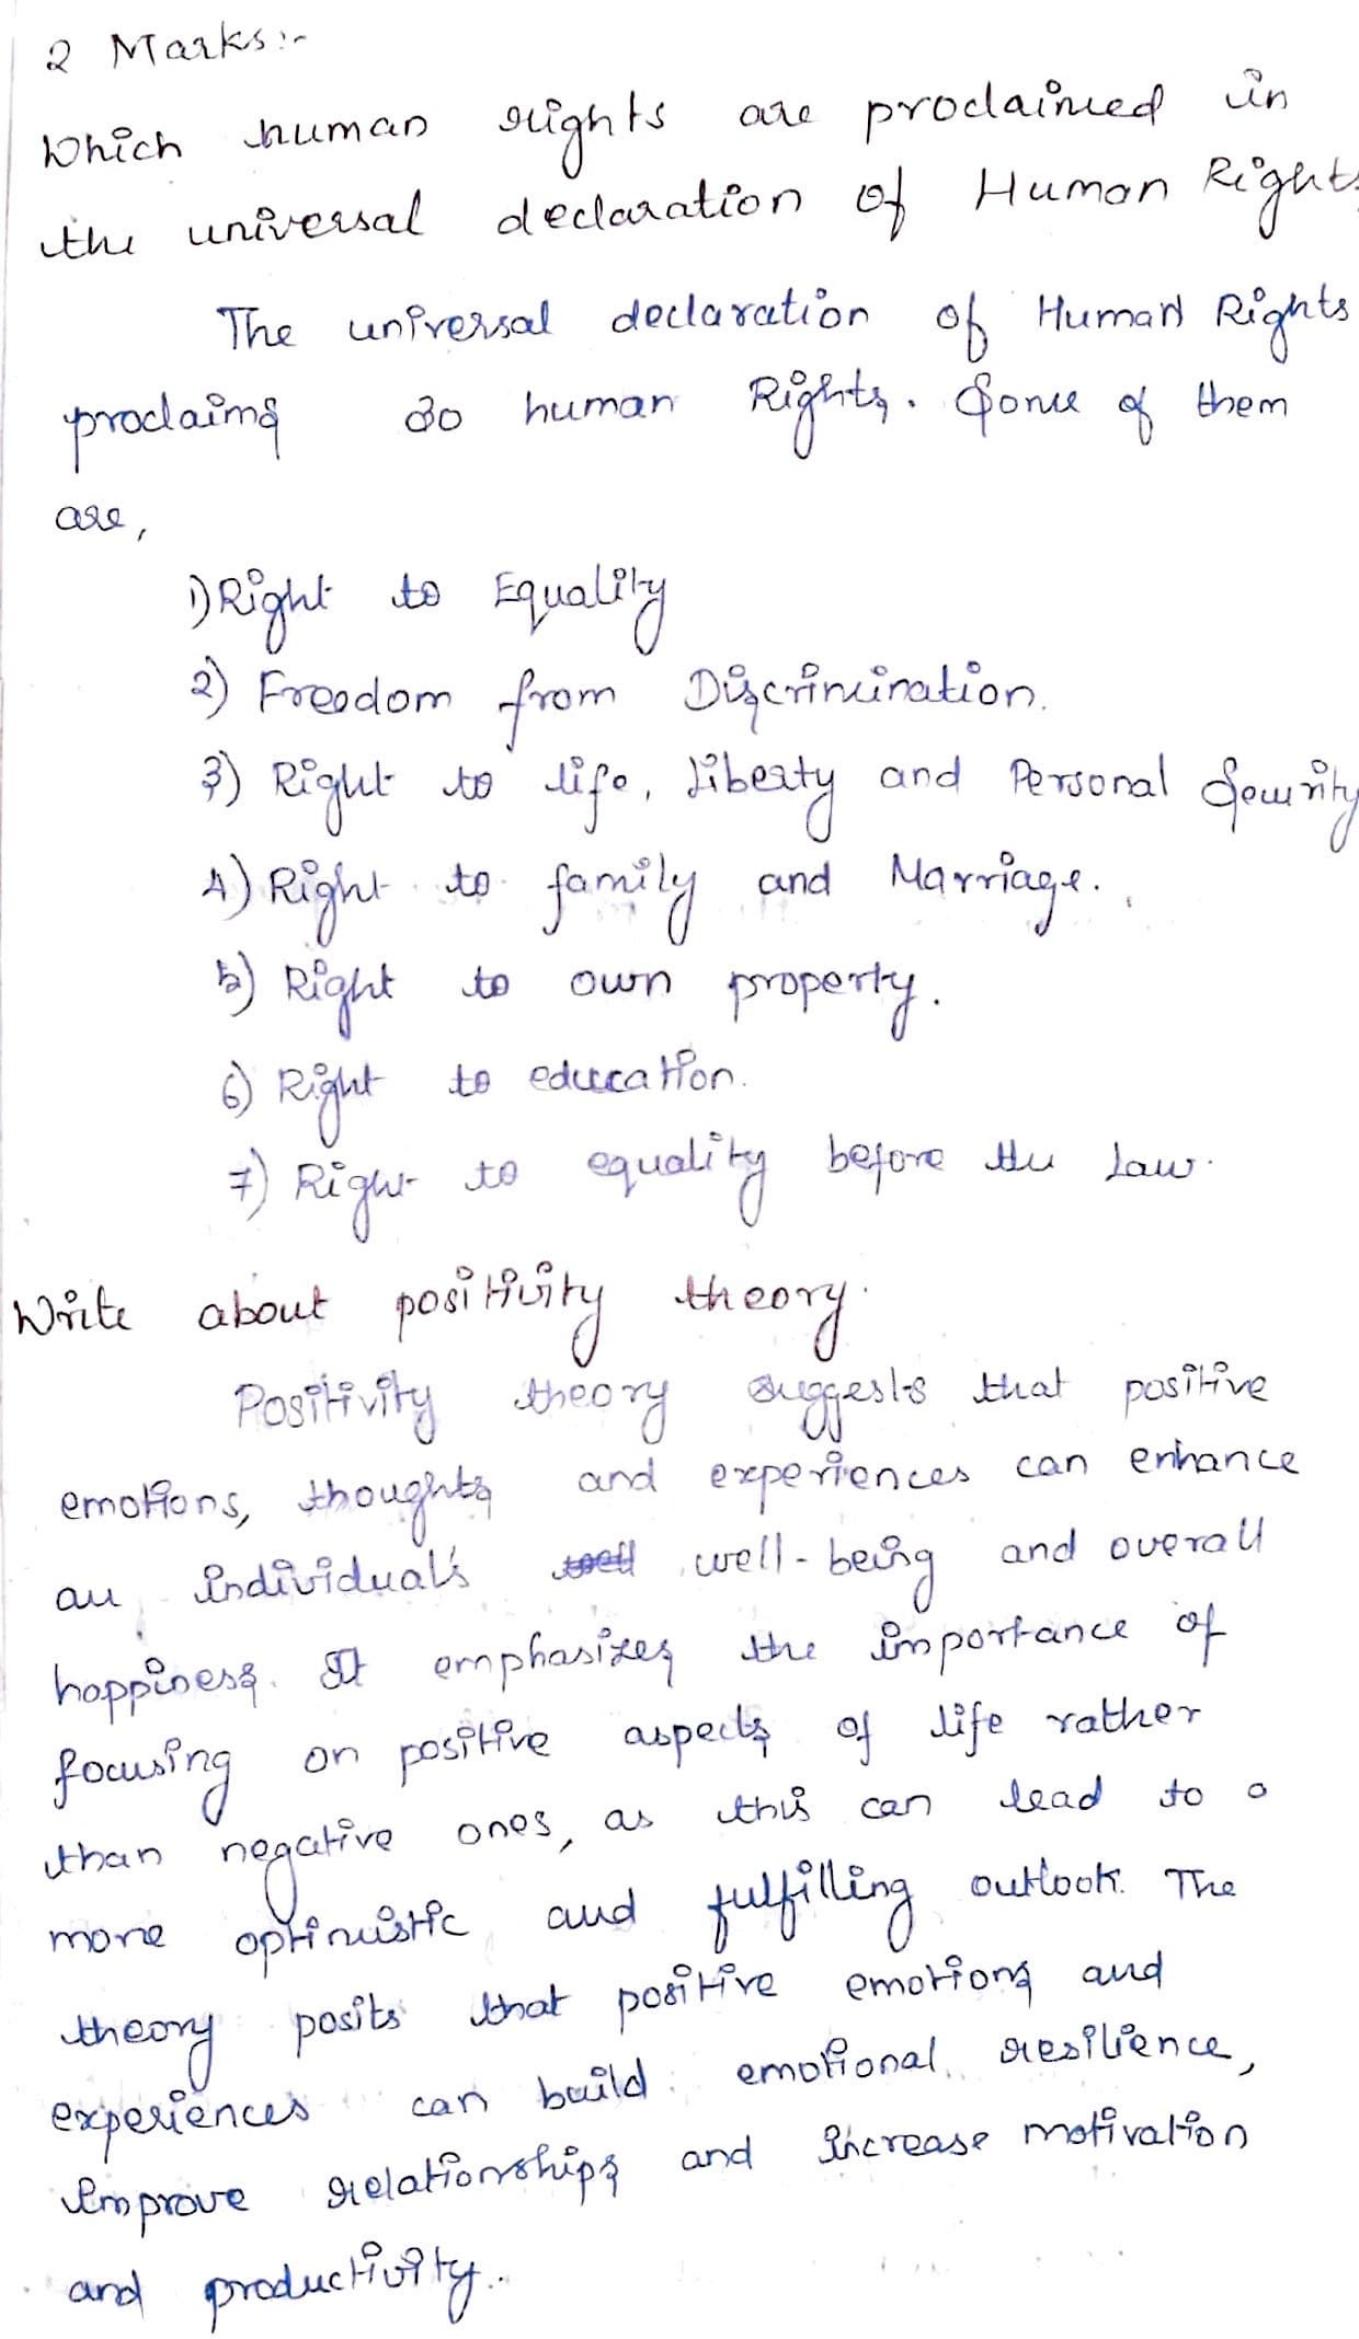 2 Marks:-
Which human rights are proclaimed in
the universal declaration of Human Rights
The universal declaration of Human Rights
proclaims 30 human Rights. Some of them
are,
1) Right to Equality
2) Freedom from Discrimination.
3) Right to life, Liberty and Personal Security
4) Right to family and Marriage.
5) Right to own property.
6) Right to education.
7) Right to equality before the Law.
Write about positivity theory.
Positivity theory suggests that positive
emotions, thoughts and experiences can enhance
an individual's well well-being and overall
happiness. It emphasizes the importance of
focusing on positive aspects of life rather
than negative ones, as this can lead to a
more optimistic and fulfilling outlook. The
theory posits that positive emotions and
experiences can build emotional resilience,
improve relationships and increase motivation
and productivity.